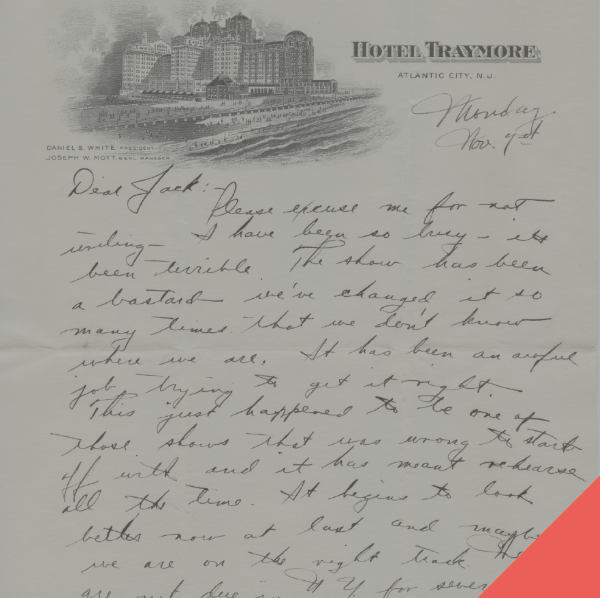 HOTEL TRAYMORE
ATLANTIC CITY, N.J.
DANIEL S. WHITE PRESIDENT
JOSEPH W. MOTT, GENL. MANAGER
Monday
Nov.
Dear Jack:-
Please excuse me for not
writing- I have been so busy - its
been terrible. The show has been
a bastard we've changed it so
many times that we don't know
where we are. It has been an awful
job trying to get it right
This just happened to be one of
those shows that was wrong to start
off with and it has meant rehearse
all the time. It begins to look
better now at last and maybe
we are on the right track.
are not due in N.Y. for